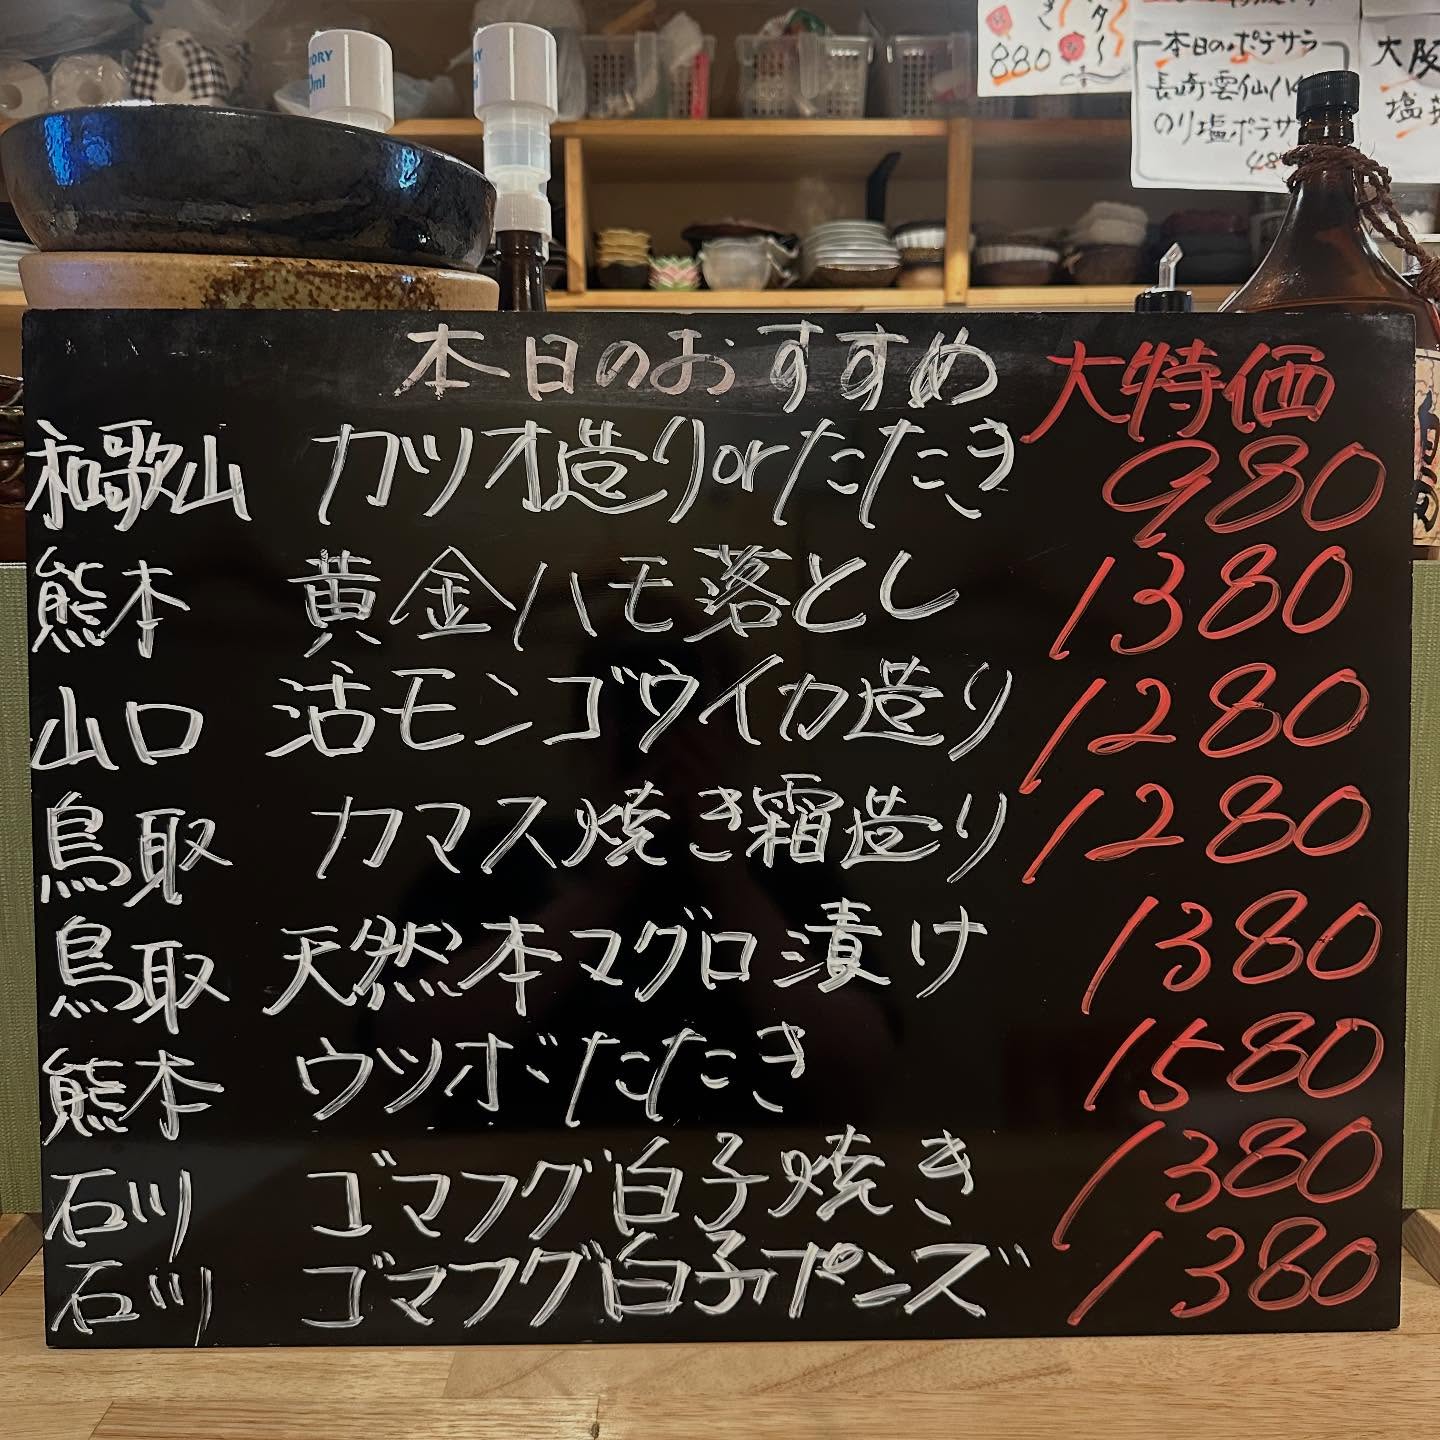 880
本日のポテサラ
長崎雲仙ハム
のり塩ポテサラ
大阪
塩
本日のおすすめ 大特価
和歌山 カツオ造りorたたき 980
熊本 黄金ハモ落とし 1380
山口 活モンゴウイカ造り 1280
鳥取 カマス焼き霜造り 1280
鳥取 天然本マグロ漬け 1380
熊本 ウツボたたき 1580
石川 ゴマフグ白子焼き 1380
石川 ゴマフグ白子ポンズ 1380